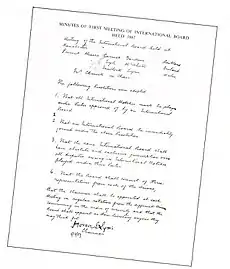 MINUTES OF FIRST MEETING OF INTERNATIONAL BOARD
Meeting of the International Board held at
Manchester
Present Messrs Gardner Scotland
Lyle Ireland
Lyne Wales
Mr in Chair
The following resolutions were adopted
1. That all International Matches must be played
under rules approved of by an International
Board
2. That an International Board be immediately
formed under the above Resolution
3. That the said International Board shall
have absolute and exclusive jurisdiction over
all disputes arising in International Matches
played under their Rules.
4. That the Board shall consist of three
representatives from each of the Unions,
that the Chairman shall be appointed at each
Meeting in regular rotation from the different Unions
commencing in the order of seniority, and that the
Board shall appoint as their Secretary anyone they
may think fit.
Chairman